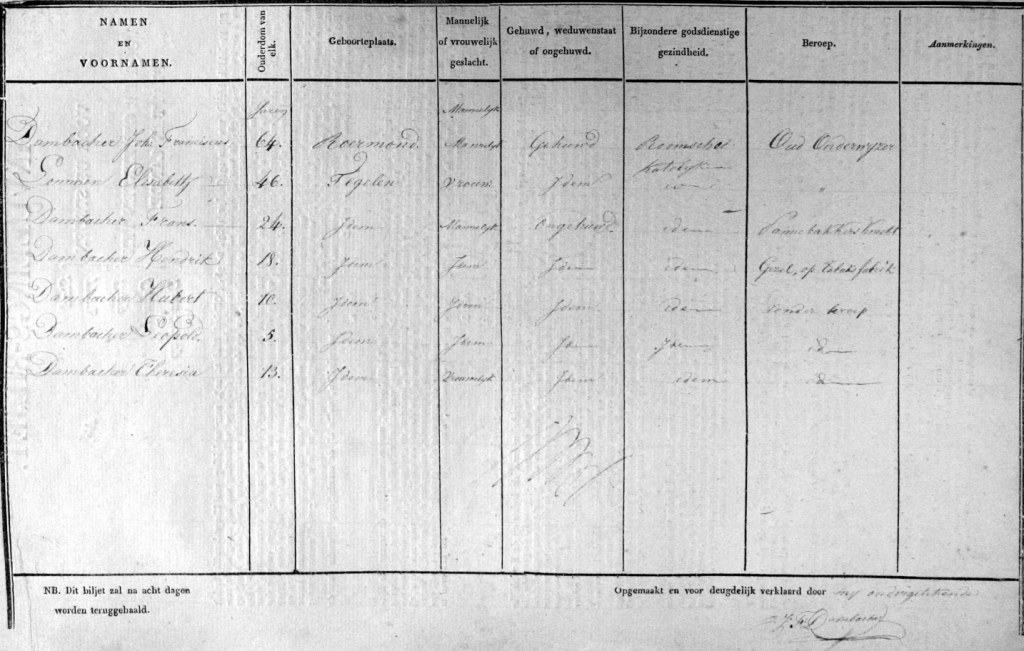 NAMEN EN VOORNAMEN. Ouderdom van elk. Geboorteplaats. Mannelijk of vrouwelijk geslacht. Gehuwd, weduwenstaat of ongehuwd. Bijzondere godsdienstige gezindheid. Beroep. Aanmerkingen.
Jaren Mannelyk
Dambacher Joh: Franciscus 64. Roermond Mannelyk Gehuwd Roomsche Oud Onderwyzer
Katolyk
Elisabeth 46. Tegelen Vrouw Idem "
Dambacher Frans. 24. Idem Mannelyk Ongehuwd. idem Pannebakkers knecht
Dambacher Hendrik 18. Idem Idem Idem idem op Tabaksfabriek
Dambacher Hubert 10. Idem Idem Idem idem Zonder beroep
Dambacher Leopold. 5. Idem Idem Idem
Dambacher Theresia 13. Idem Vrouwelyk Idem idem
NB. Dit biljet zal na acht dagen worden teruggehaald.
Opgemaakt en voor deugdelijk verklaard door my ondergetekende
J. F. Dambacher